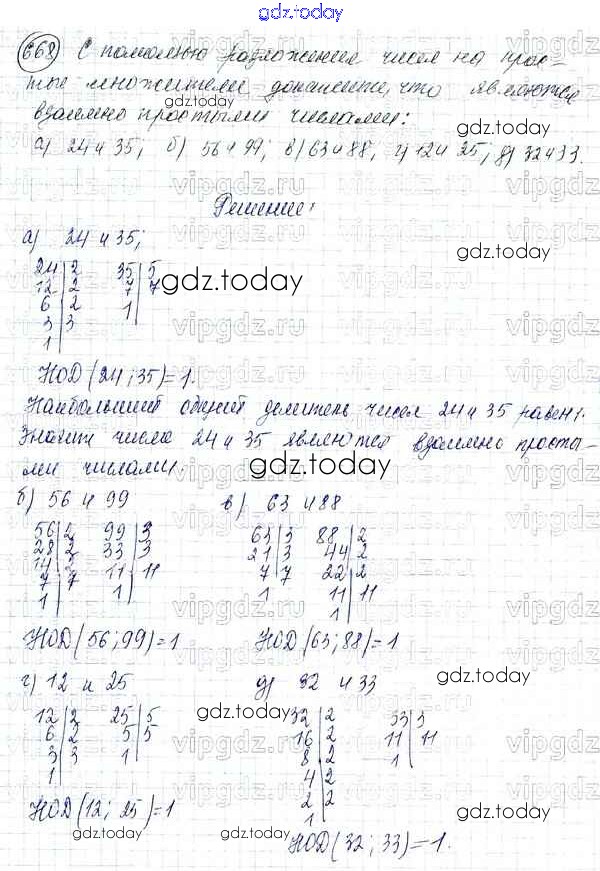 gdz.today
668 С помощью разложения чисел на прос-
тые множители докажите, что являются
взаимно простыми числами:
а) 24 и 35; б) 56 и 99; в) 63 и 88; г) 12 и 25; д) 32 и 33.
Решение:
а) 24 и 35;
24|2 35|5
12|2 7|7
6|2 1|
3|3
1|
НОД (24; 35) = 1.
Наибольший общий делитель чисел 24 и 35 равен 1.
Значит числа 24 и 35 являются взаимно просты-
ми числами.
б) 56 и 99 в) 63 и 88
56|2 99|3 63|3 88|2
28|2 33|3 21|3 44|2
14|2 11|11 7|7 22|2
7|7 1| 1 11|11
1| 1|
НОД (56; 99) = 1 НОД (63; 88) = 1
г) 12 и 25 д) 32 и 33
12|2 25|5 32|2 33|3
6|2 5|5 16|2 11|11
3|3 1| 8|2 1|
1| 4|2
2|2
1
НОД (12; 25) = 1
НОД (32; 33) = 1.
gdz.today
vipgdz.ru